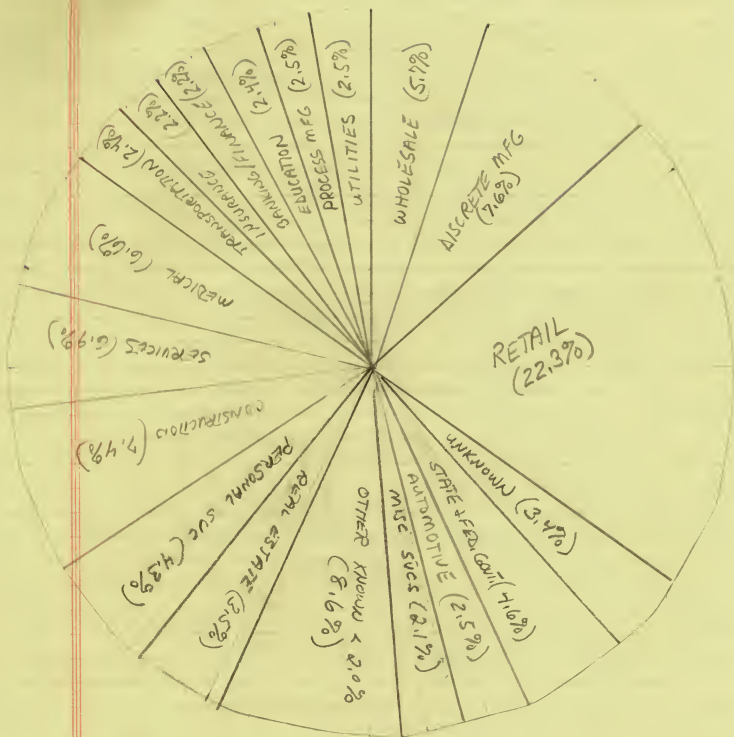 WHOLESALE (5.7%)
DISCRETE MFG
(7.6%)
RETAIL
(22.3%)
UNKNOWN (3.4%)
STATE & FED. GOVT. (4.6%)
AUTOMOTIVE (2.5%)
MISC SVCS (2.1%)
OTHER KNOWN < 2.0%
(8.6%)
REAL ESTATE (3.5%)
PERSONAL SVC (4.3%)
CONSTRUCTION (7.4%)
SERVICES (6.9%)
MEDICAL (6.6%)
TRANSPORTATION (2.4%)
INSURANCE (2.2%)
BANKING/FINANCE (2.2%)
EDUCATION (2.4%)
PROCESS MFG (2.5%)
UTILITIES (2.5%)